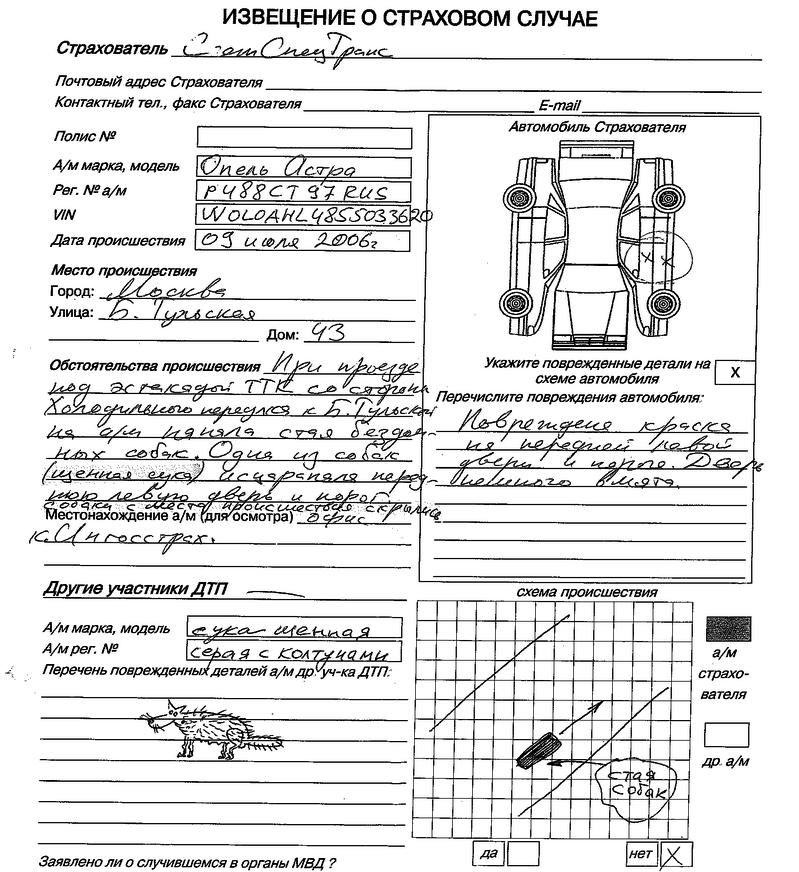 ИЗВЕЩЕНИЕ О СТРАХОВОМ СЛУЧАЕ
Страхователь СпецТранс
Почтовый адрес Страхователя
Контактный тел., факс Страхователя E-mail
Полис №
А/м марка, модель Опель Астра
Рег. № а/м Р488СТ 97 RUS
VIN W0L0AHL4855033620
Дата происшествия 09 июля 2006г
Место происшествия
Город: Москва
Улица: Б. Тульская
Дом: 43
Обстоятельства происшествия При проезде
под эстакадой ТТК со стороны
Холодильного переулка к Б. Тульской
на а/м напала стая бездом-
ных собак. Одна из собак
(щенная сука) исцарапала перед-
нюю левую дверь и порог.
собаки с места происшествия скрылись
Местонахождение а/м (для осмотра) офис
к. Ингосстрах.
Автомобиль Страхователя
х х
Укажите поврежденные детали на
схеме автомобиля
X
Перечислите повреждения автомобиля:
Повреждена краска
на передней левой
двери и пороге. Дверь
немного вмята.
Другие участники ДТП —
А/м марка, модель сука щенная
А/м рег. № серая с колтунами
Перечень поврежденных деталей а/м др. уч-ка ДТП:
схема происшествия
стая
собак
а/м
страхо-
вателя
др. а/м
Заявлено ли о случившемся в органы МВД ?
да
нет X